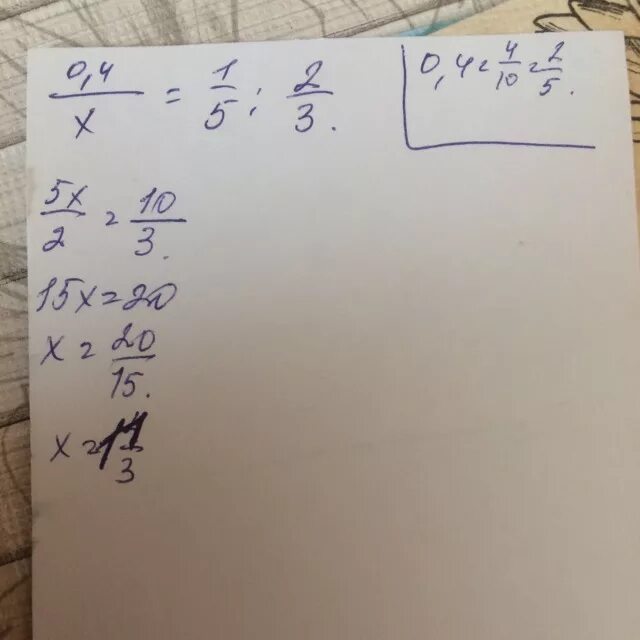 0,4/x = 1/5 : 2/3.
0,4 = 4/10 = 2/5.
5x/2 = 10/3.
15x = 20
x = 20/15.
x = 1 1/3